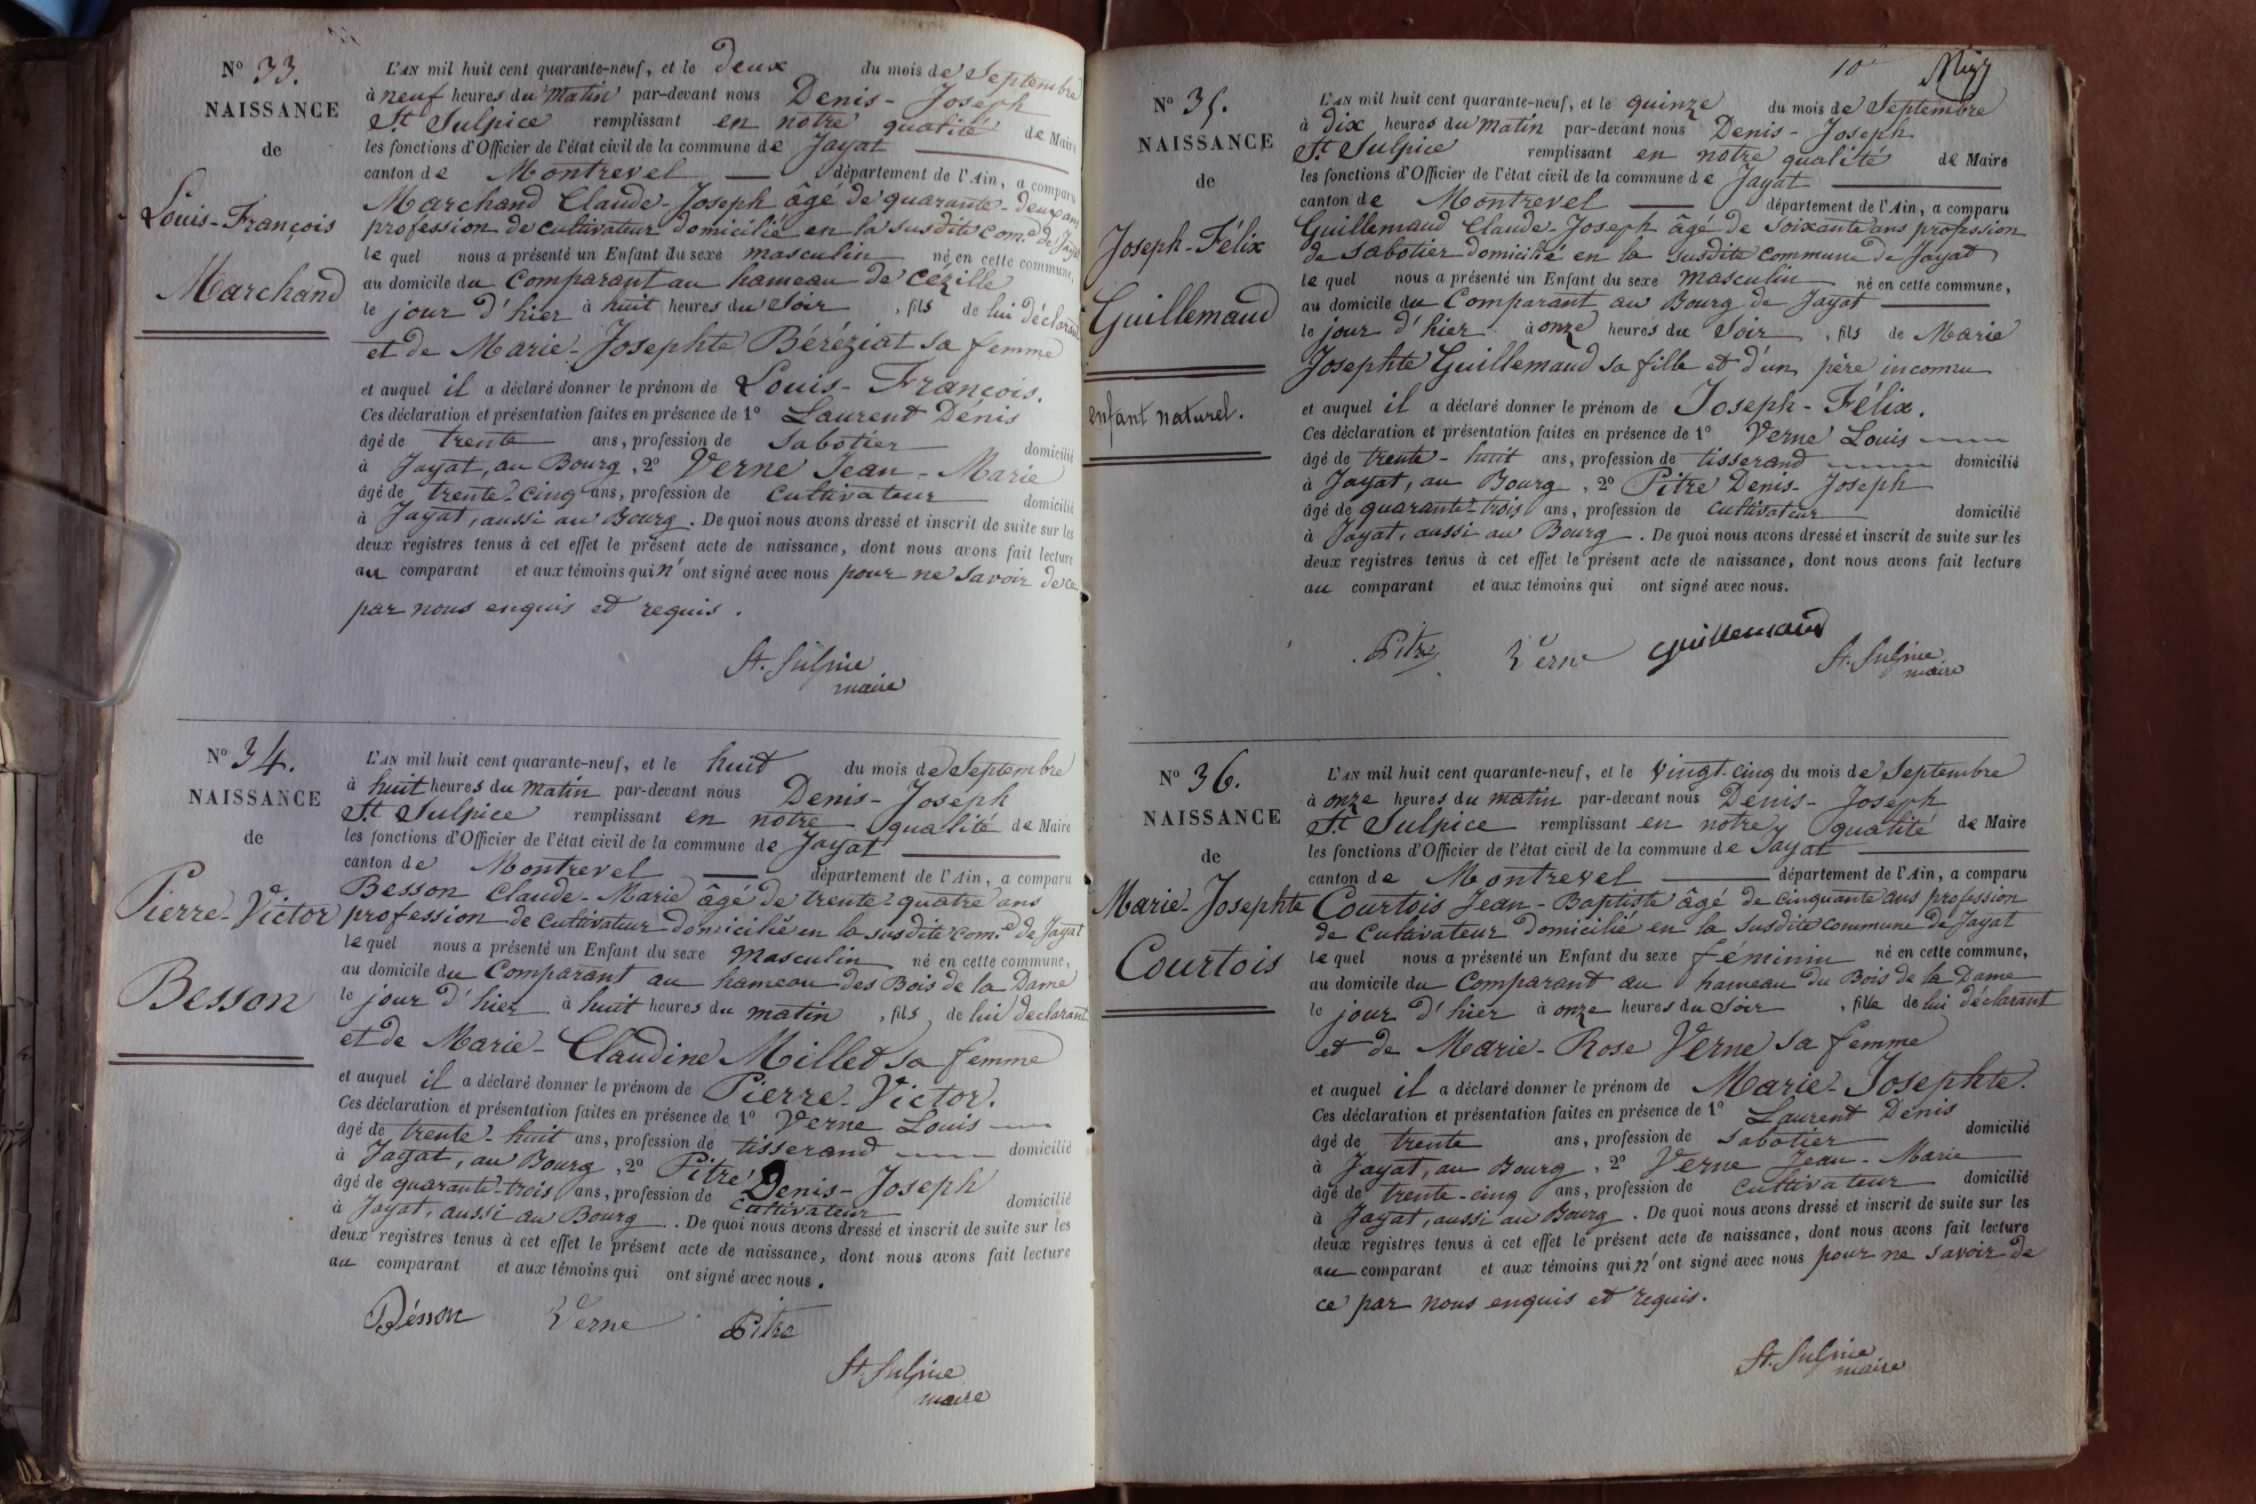 N° 33.
NAISSANCE
de
Louis-François
Marchand
L'AN mil huit cent quarante-neuf, et le deux du mois de Septembre
à neuf heures du matin par-devant nous Denis-Joseph
St Sulpice remplissant en notre qualité de Maire
les fonctions d'Officier de l'état civil de la commune de Jayat
canton de Montrevel département de l'Ain, a comparu
Marchand Claude-Joseph âgé de quarante-deux ans
profession de cultivateur domicilié en la susdite com.e de Jayat
lequel nous a présenté un Enfant du sexe masculin né en cette commune,
au domicile du Comparant au hameau de Cézille
le jour d'hier à huit heures du soir, fils de lui déclarant
et de Marie-Josephte Béréziat sa femme
et auquel il a déclaré donner le prénom de Louis-François.
Ces déclaration et présentation faites en présence de 1° Laurent Dénis
âgé de trente ans, profession de Sabotier domicilié
à Jayat, au Bourg, 2° Verne Jean-Marie
âgé de trente-cinq ans, profession de cultivateur domicilié
à Jayat, aussi au Bourg. De quoi nous avons dressé et inscrit de suite sur les
deux registres tenus à cet effet le présent acte de naissance, dont nous avons fait lecture
au comparant et aux témoins qui n'ont signé avec nous pour ne savoir de ce
par nous enquis et requis.
St. Sulpice
maire
N° 34.
NAISSANCE
de
Pierre-Victor
Besson
L'AN mil huit cent quarante-neuf, et le huit du mois de Septembre
à huit heures du matin par-devant nous Denis-Joseph
St Sulpice remplissant en notre qualité de Maire
les fonctions d'Officier de l'état civil de la commune de Jayat
canton de Montrevel département de l'Ain, a comparu
Besson Claude-Marie âgé de trente-quatre ans
profession de cultivateur domicilié en la susdite com.e de Jayat
lequel nous a présenté un Enfant du sexe masculin né en cette commune,
au domicile du Comparant au hameau des Bois de la Dame
le jour d'hier à huit heures du matin, fils de lui déclarant
et de Marie-Claudine Millet sa femme
et auquel il a déclaré donner le prénom de Pierre-Victor.
Ces déclaration et présentation faites en présence de 1° Verne Louis
âgé de trente-huit ans, profession de tisserand domicilié
à Jayat, au Bourg, 2° Pitre Denis-Joseph
âgé de quarante-trois ans, profession de cultivateur domicilié
à Jayat, aussi au Bourg. De quoi nous avons dressé et inscrit de suite sur les
deux registres tenus à cet effet le présent acte de naissance, dont nous avons fait lecture
au comparant et aux témoins qui ont signé avec nous.
Bésson Verne Pitre
St. Sulpice
maire
10e
N° 35.
NAISSANCE
de
Joseph-Félix
Guillemaud
enfant naturel.
L'AN mil huit cent quarante-neuf, et le quinze du mois de Septembre
à dix heures du matin par-devant nous Denis-Joseph
St Sulpice remplissant en notre qualité de Maire
les fonctions d'Officier de l'état civil de la commune de Jayat
canton de Montrevel département de l'Ain, a comparu
Guillemaud Claude-Joseph âgé de soixante ans profession
de sabotier domicilié en la susdite commune de Jayat
lequel nous a présenté un Enfant du sexe masculin né en cette commune,
au domicile du Comparant au Bourg de Jayat
le jour d'hier à onze heures du soir, fils de Marie
Josephte Guillemaud sa fille et d'un père inconnu
et auquel il a déclaré donner le prénom de Joseph-Félix.
Ces déclaration et présentation faites en présence de 1° Verne Louis
âgé de trente-huit ans, profession de tisserand domicilié
à Jayat, au Bourg, 2° Pitre Denis-Joseph
âgé de quarante-trois ans, profession de cultivateur domicilié
à Jayat, aussi au Bourg. De quoi nous avons dressé et inscrit de suite sur les
deux registres tenus à cet effet le présent acte de naissance, dont nous avons fait lecture
au comparant et aux témoins qui ont signé avec nous.
Pitre Verne Guillemaud
St. Sulpice
maire
N° 36.
NAISSANCE
de
Marie-Josephte
Courtois
L'AN mil huit cent quarante-neuf, et le vingt-cinq du mois de Septembre
à onze heures du matin par-devant nous Denis-Joseph
St Sulpice remplissant en notre qualité de Maire
les fonctions d'Officier de l'état civil de la commune de Jayat
canton de Montrevel département de l'Ain, a comparu
Courtois Jean-Baptiste âgé de cinquante ans profession
de cultivateur domicilié en la susdite commune de Jayat
lequel nous a présenté un Enfant du sexe féminin né en cette commune,
au domicile du Comparant au hameau du Bois de la Dame
le jour d'hier à onze heures du soir, fille de lui déclarant
et de Marie-Rose Verne sa femme
et auquel il a déclaré donner le prénom de Marie-Josephte.
Ces déclaration et présentation faites en présence de 1° Laurent Denis
âgé de trente ans, profession de sabotier domicilié
à Jayat, au Bourg, 2° Verne Jean-Marie
âgé de trente-cinq ans, profession de cultivateur domicilié
à Jayat, aussi au Bourg. De quoi nous avons dressé et inscrit de suite sur les
deux registres tenus à cet effet le présent acte de naissance, dont nous avons fait lecture
au comparant et aux témoins qui n'ont signé avec nous pour ne savoir de
ce par nous enquis et requis.
St. Sulpice
maire